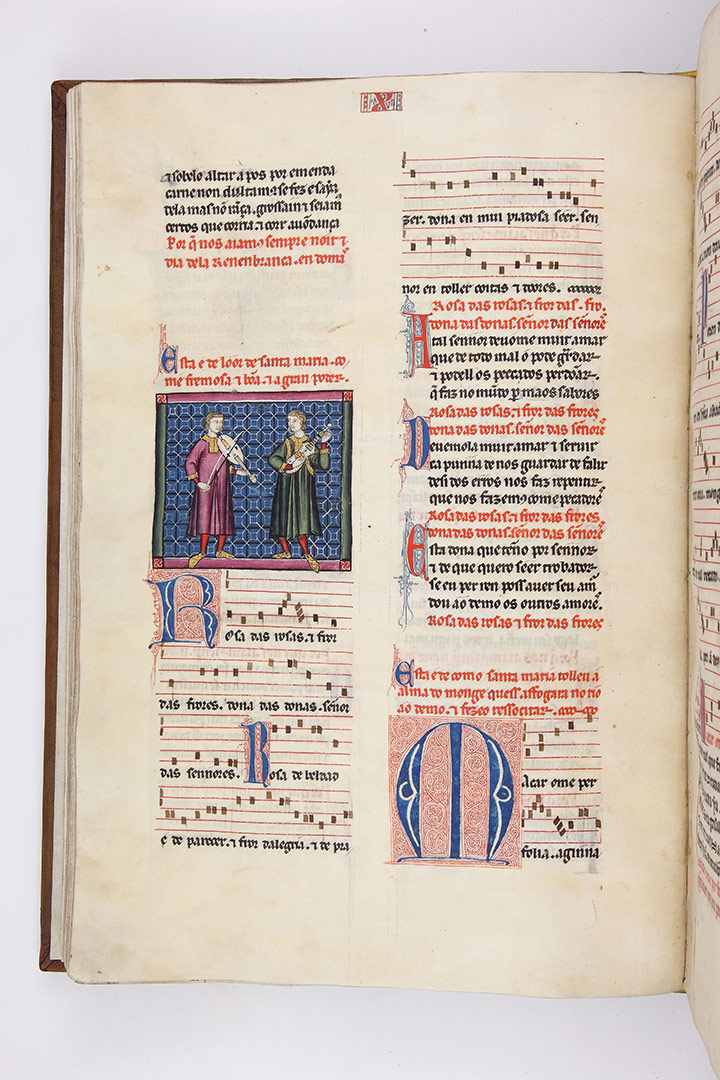 sobelo altar a pos por emenda
carne non
dela mas nõ rãça, grossain e seiam
certos que corria e corr auõdança
Por q̃ nos aiamꝰ sempre noit e
dia dela Renenbrança. en domã
Esta e de loor de santa maria. co-
me fremosa e bõa. e a gran poder.
Rosa das rosas. e fror
das frores. dona das donas. señor
das sennores. Rosa de beldad
e de parecer. e fror dalegria. e de pra
zer. dona en mui piadosa seer. sen
nor en toller coitas e doores.
Rosa das rosas. e fror das. fro.
dona das donas. señor das señorẽ
Atal sennor deuome muit amar
que de todo mal o pode gũrdar
e potell os pecados perdõar.
q̃ faz no mũdo per maos sabores
Rosa das rosas. e fror das frores
dona das donas. señor das señorẽ
Deuemola muit amar e seruir
ca punna de nos guardar de falir
desi dos erros nos faz repentir
que nos fazemꝰ come pecadorẽ
Rosa das rosas. e fror das frores
dona das donas. señor das señorẽ
Esta dona que tẽno por sennor
e de que quero seer trobador
se eu per ren poss auer seu amor
dou aõ demo os outros amorẽ.
Rosa das rosas e fror das frores
Esta e de como santa maria tolleu a
alma do monge quess. affogara no rio
aõ demo. e fezeo ressocitar.
Macar ome per
folia. aginna